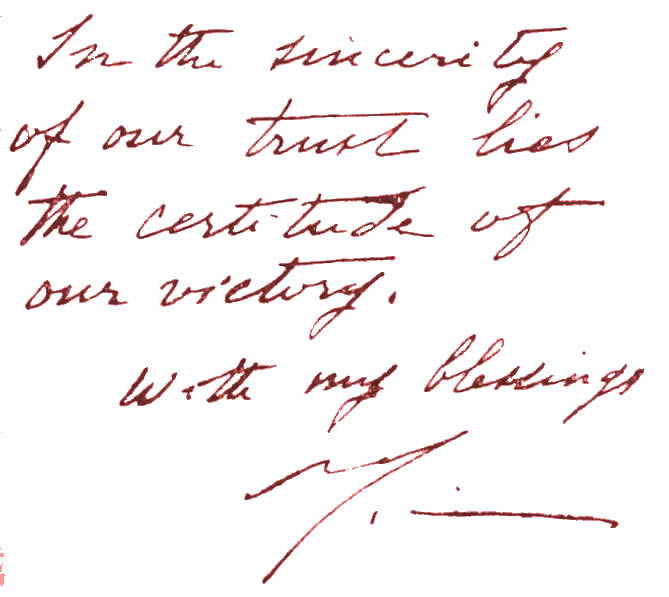 In the sincerity
of our trust lies
the certitude of
our victory.
With my blessings